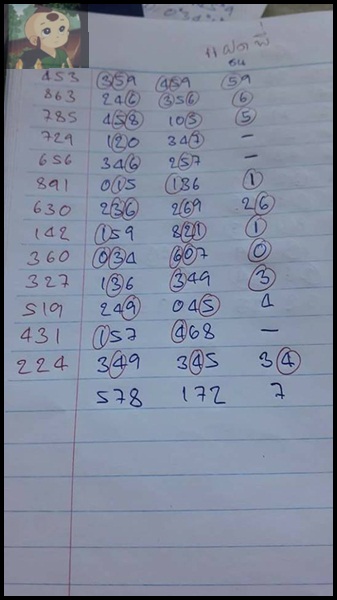 แฝดพี่
453 359 459 59
863 246 356 6
785 458 103 5
729 120 347 -
656 346 257 -
891 015 186 1
630 236 269 26
142 159 821 1
360 034 607 0
327 136 349 3
519 249 045 4
431 157 468 -
224 349 345 34
578 172 7